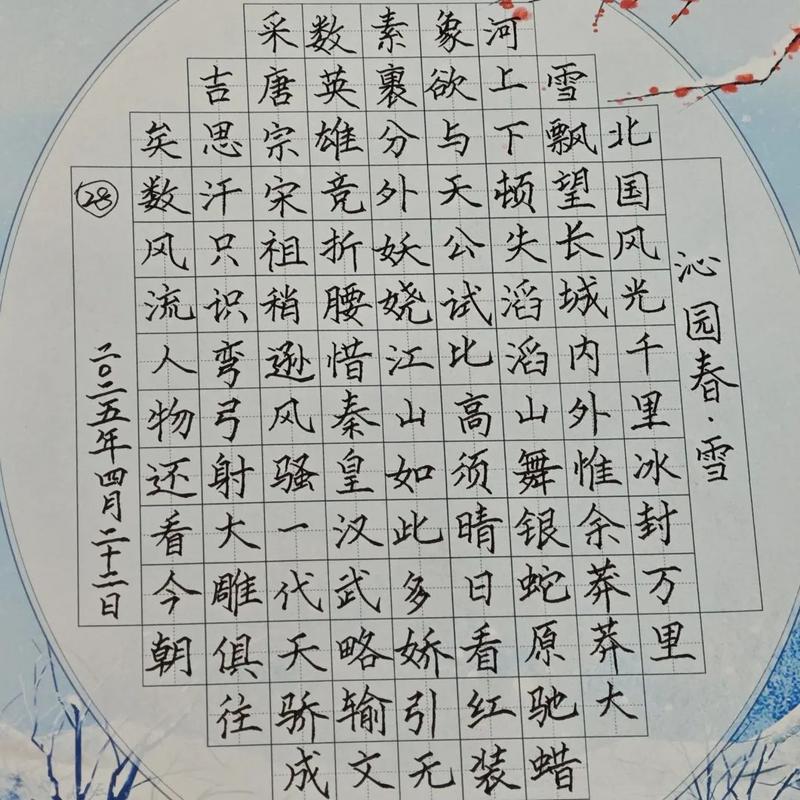 沁园春·雪
北国风光千里冰封万里
雪飘望长城内外惟余莽莽大
河上下顿失滔滔山舞银蛇原驰蜡
象欲与天公试比高须晴日看红装
素裹分外妖娆江山如此多娇引无
数英雄竞折腰惜秦皇汉武略输文
采唐宗宋祖稍逊风骚一代天骄成
吉思汗只识弯弓射大雕俱往
矣数风流人物还看今朝
28
二〇二五年四月二十二日